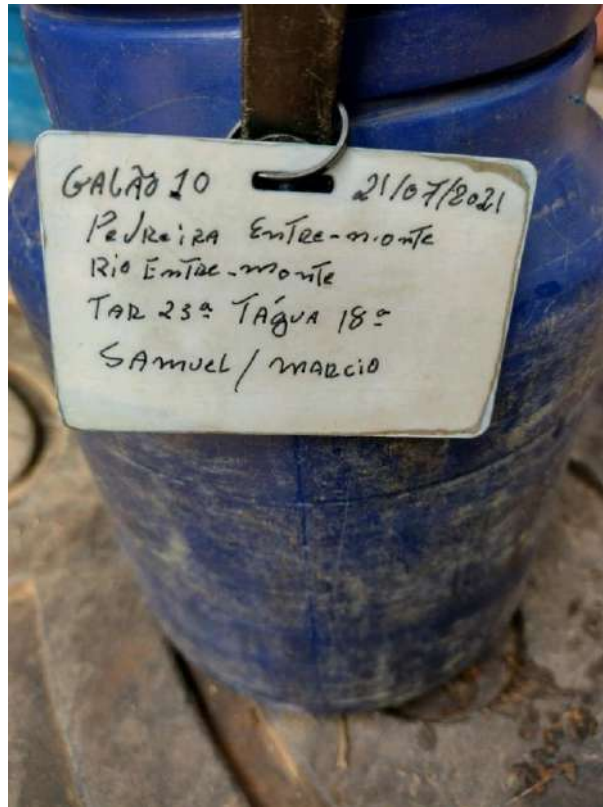 GALÃO 10 21/07/2021
Pedreira Entre-monte
Rio Entre-monte
TAR 23ª TÁgua 18ª
SAmuel / marcio